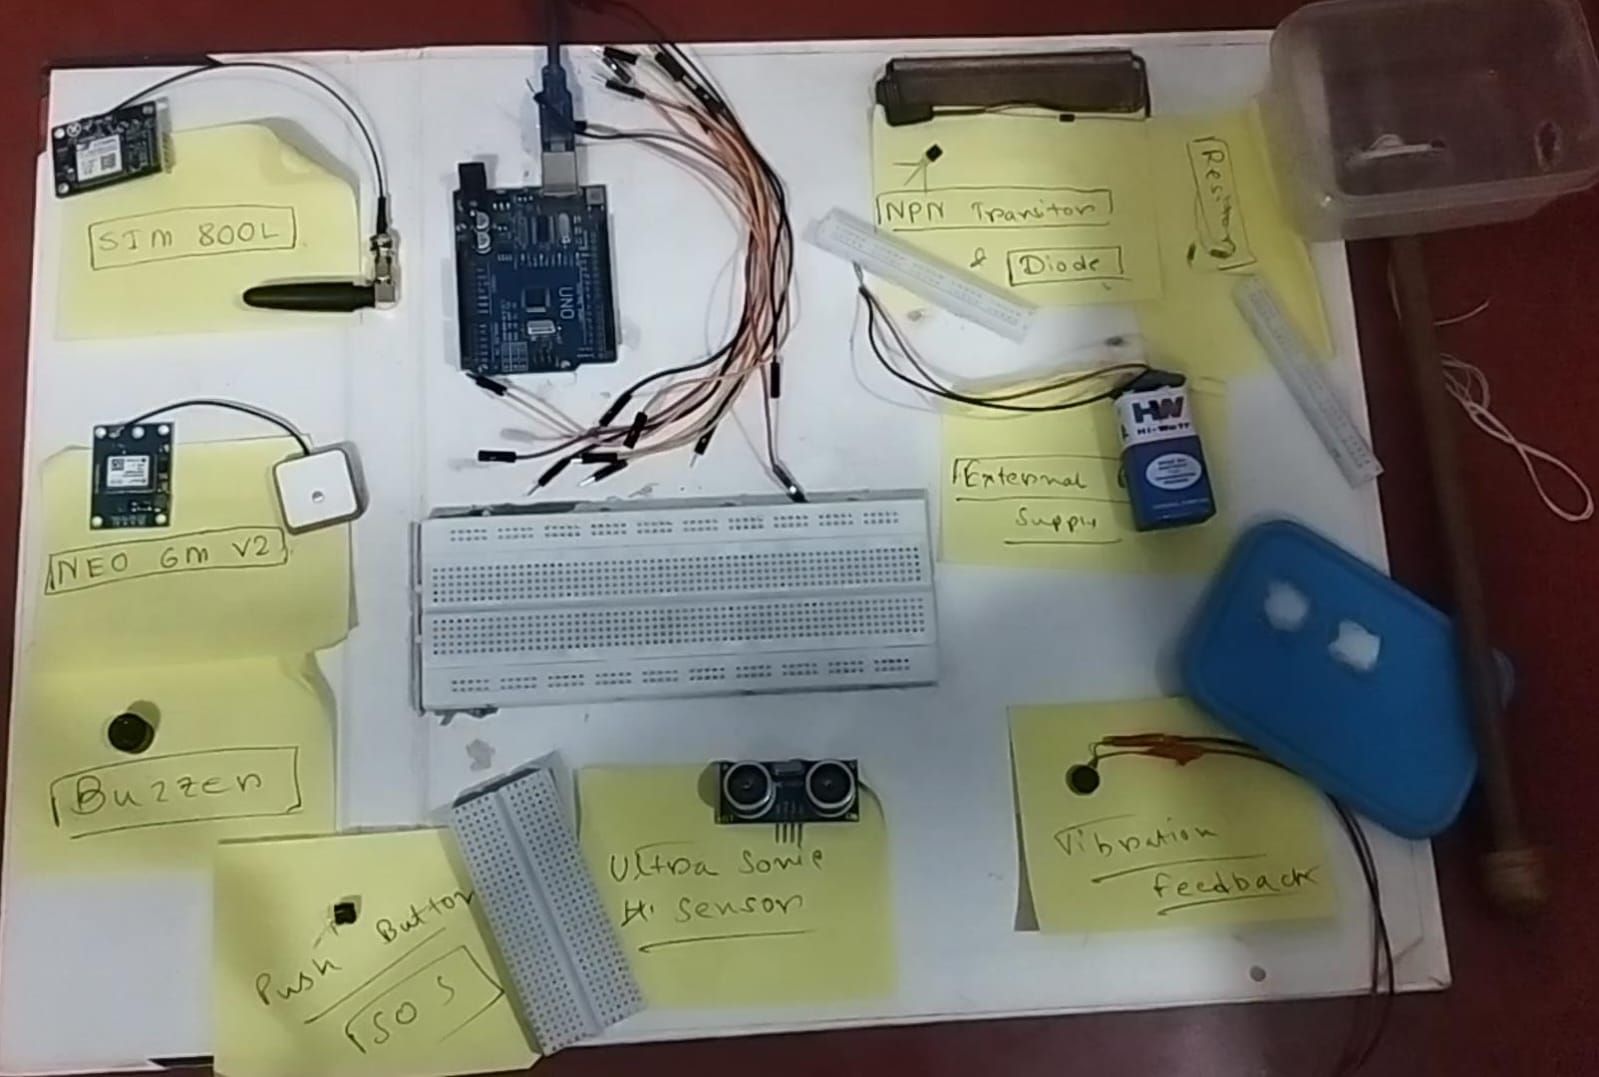 SIM 800L
UNO
NPN Transitor
& Diode
Resistors
HW
HI-WATT
External
Supply
NEO 6M V2
Buzzer
Push Button
SOS
Ultra Sonic
Sensor
Vibration
feedback